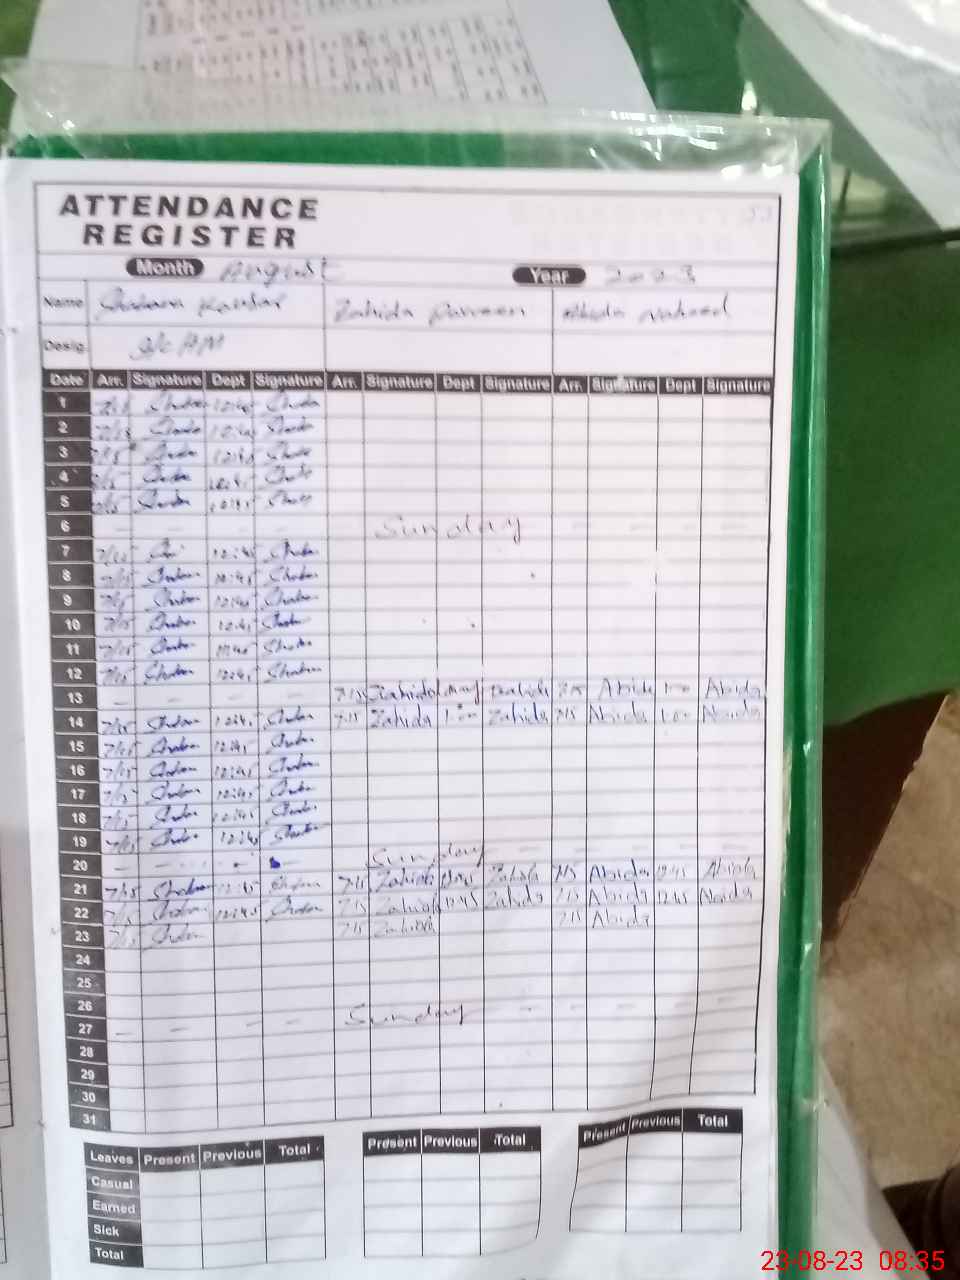 ATTENDANCE
REGISTER
Month August Year 2023
Name Zahida Parveen Abida Naheed
Desig I/c HM
Date Arr. Signature Dept Signature Arr. Signature Dept Signature Arr. Signature Dept Signature
1 7/15 Shaban 12:45 Shaban
2 7/15 Shaban 12:45 Shaban
3 7/15 Shaban 12:45 Shaban
4 7/15 Shaban 12:45 Shaban
5 7/15 Shaban 12:45 Shaban
6 — — — — Sunday — — — —
7 7/15 12:45 Shaban
8 7/15 Shaban 12:45 Shaban
9 7/15 Shaban 12:45 Shaban
10 7/15 Shaban 12:45 Shaban
11 7/15 Shaban 12:45 Shaban
12 7/15 Shaban 12:45 Shaban
13 — — — — 7:15 Zahida Zahida 7:15 Abida 1:00 Abida
14 7/15 Shaban 12:45 Shaban 7:15 Zahida 1:00 Zahida 7:15 Abida 1:00 Abida
15 7/15 Shaban 12:45 Shaban
16 7/15 Shaban 12:45 Shaban
17 7/15 Shaban 12:45 Shaban
18 7/15 Shaban 12:45 Shaban
19 7/15 Shaban 12:45 Shaban
20 — — — — Sunday — — — —
21 7/15 Shaban 12:45 Shaban 7:15 Zahida 12:45 Zahida 7:15 Abida 12:45 Abida
22 7/15 Shaban 12:45 Shaban 7:15 Zahida 12:45 Zahida 7:15 Abida 12:45 Abida
23 7/15 Shaban 7:15 Zahida 7:15 Abida
24
25
26
27 — — — — Sunday — — — —
28
29
30
31
Leaves Present Previous Total Present Previous Total Present Previous Total
Casual
Earned
Sick
Total
23-08-23 08:35